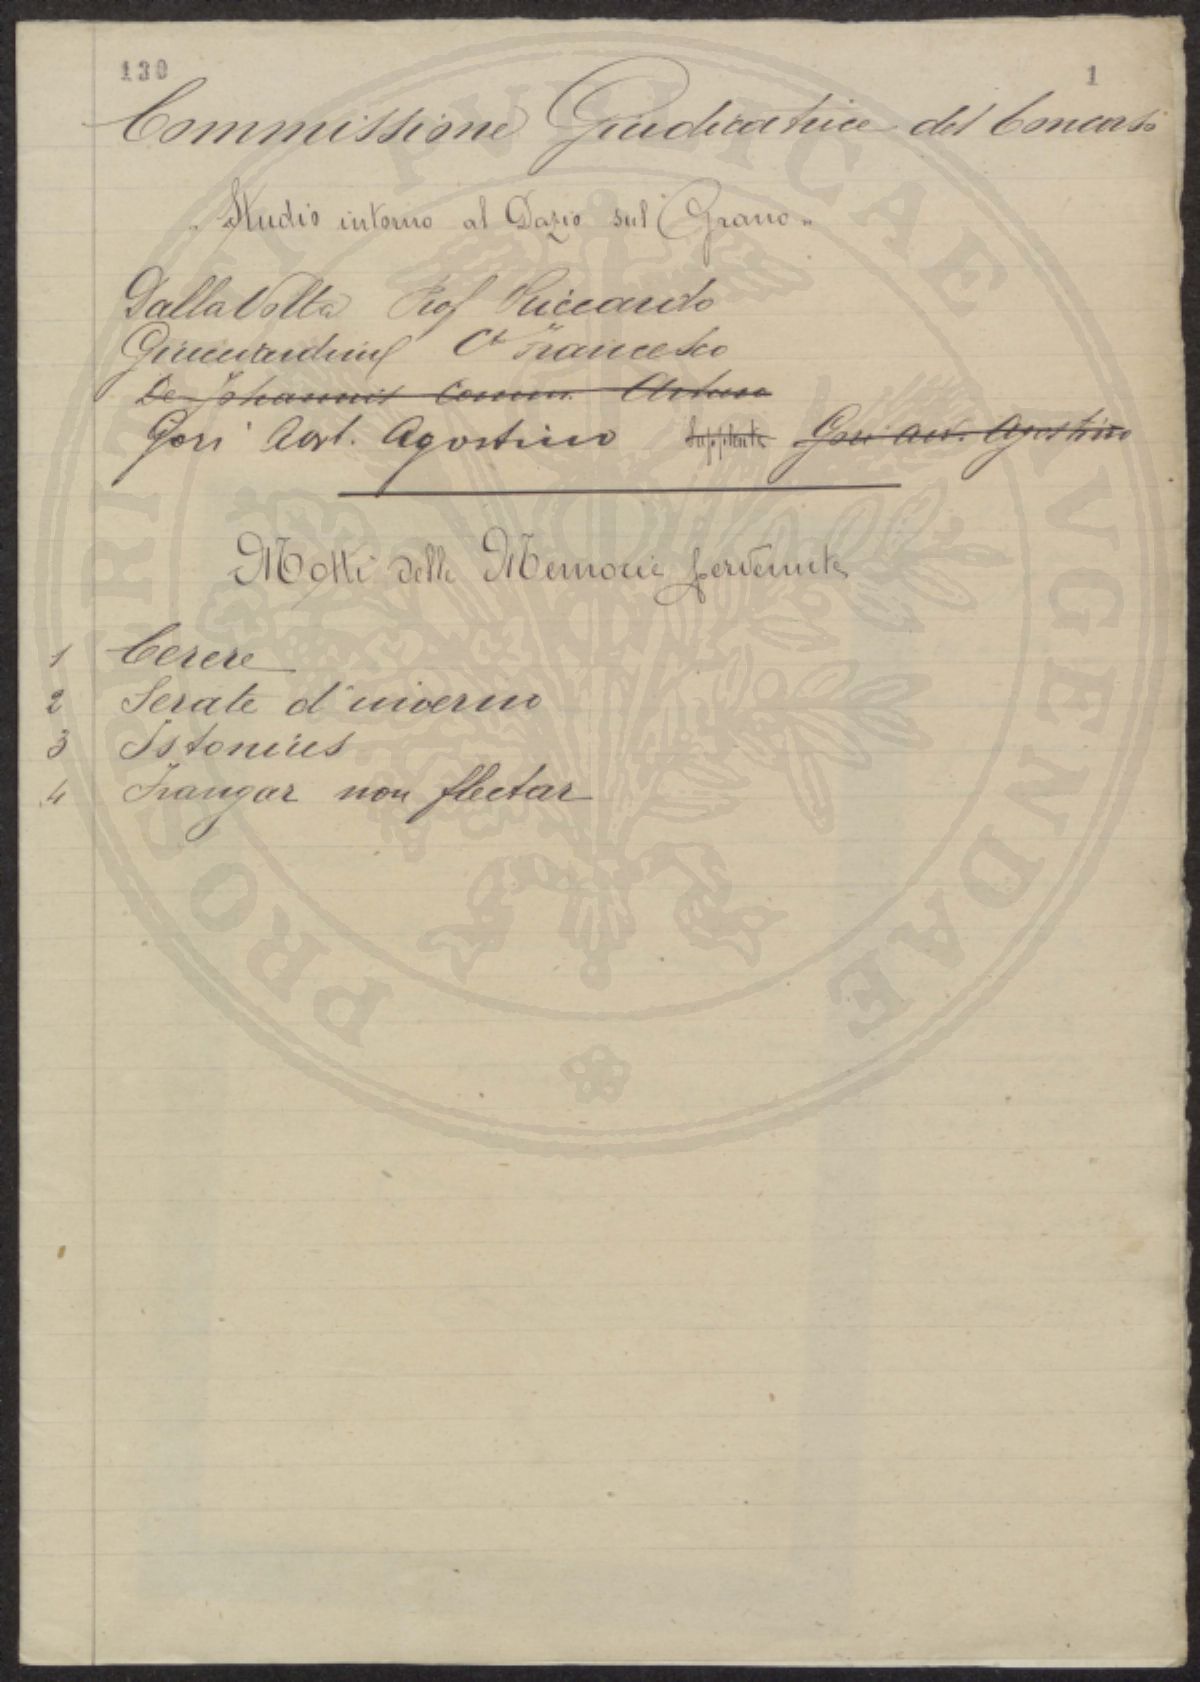 130
1
Commissione Giudicatrice del Concorso
"Studio intorno al Dazio sul Grano"
Dalla Volta Prof Riccardo
Guicciardini Ct Francesco
De Johannis Comm. Arturo
Gori Avv. Agostino Supplente Gori Avv. Agostino
Motti delle Memorie pervenute
1 Cerere
2 Serate d'inverno
3 Istonies
4 Frangar non flectar
PROSPERITATI PVBLICAE AVGENDAE